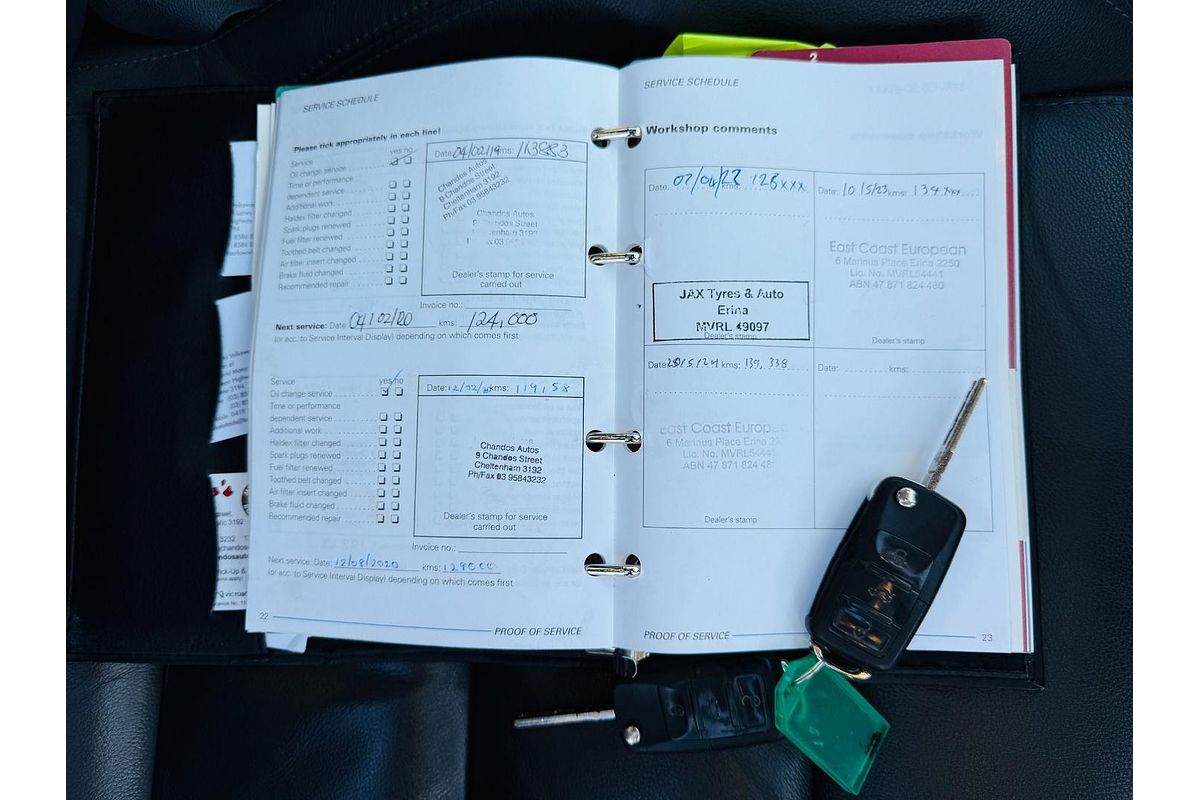 2
SERVICE SCHEDULE
Please tick appropriately in each line!
yes no
Service
Oil change service
Time or performance
dependent service
Additional work
Haldex filter changed
Spark plugs renewed
Fuel filter renewed
Toothed belt changed
Air filter insert changed
Brake fluid changed
Recommended repair
Date: 04/02/19 kms: 113883
Chandos Autos
9 Chandos Street
Cheltenham 3192
Ph/Fax 03 95843232
Chandos Autos
Chandos Street
3192
Dealer's stamp for service
carried out
Invoice no.:
Next service: Date: 04/02/20 kms: 124,000
(or acc. to Service Interval Display) depending on which comes first
Service
yes no
Oil change service
Time or performance
dependent service
Additional work
Haldex filter changed
Spark plugs renewed
Fuel filter renewed
Toothed belt changed
Air filter insert changed
Brake fluid changed
Recommended repair
Date: 12/02/ kms:
Chandos Autos
9 Chandos Street
Cheltenham 3192
Ph/Fax 03 95843232
Dealer's stamp for service
carried out
Invoice no.:
Next service: Date: 12/08/2020 kms: 129000
(or acc. to Service Interval Display) depending on which comes first
22
PROOF OF SERVICE
SERVICE SCHEDULE
Workshop comments
Date: kms: 128xxx
JAX Tyres & Auto
Erina
MVRL 49097
Dealer's stamp
Date: 10/5/23 kms: 134xxx
East Coast European
6 Marinus Place Erina 2250
Lic. No. MVRL54441
ABN 47 871 824 480
Dealer's stamp
Date: /5/24 kms: 139,338
East Coast
6 Marinus Place Erina
Lic. No. MVRL5444
ABN 47 871 824 48
Dealer's stamp
Date: kms:
PROOF OF SERVICE
23